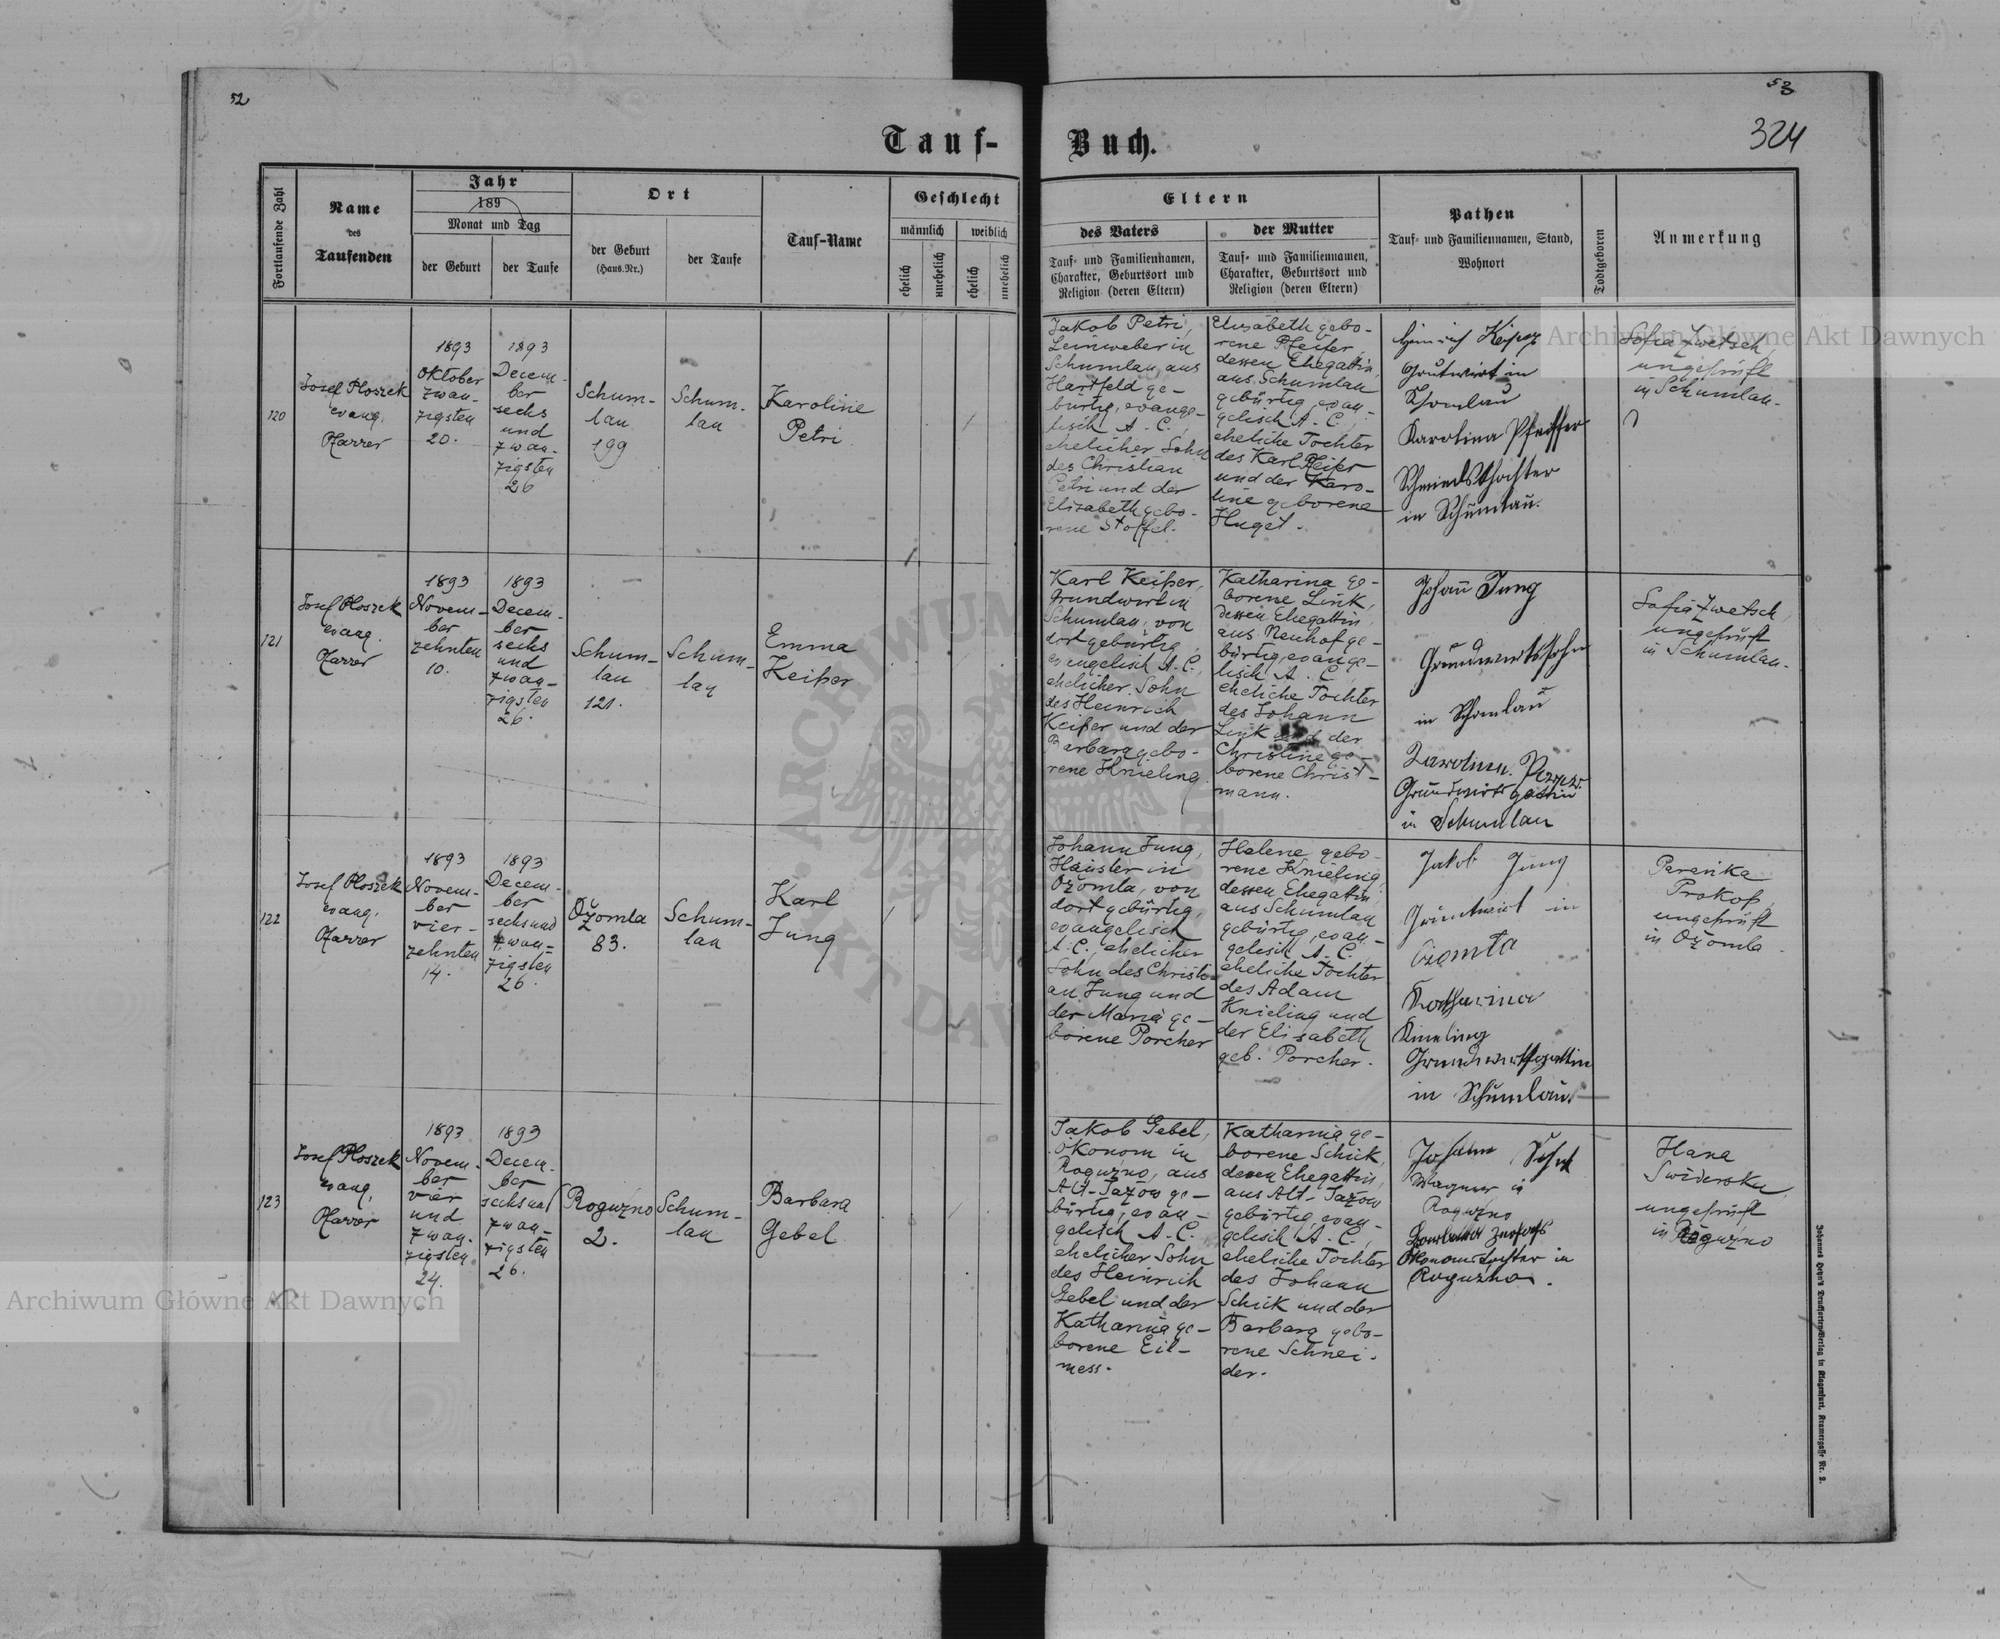 52
53
324
Tauf-
Buch.
Fortlaufende Zahl
Name
des
Taufenden
Jahr
189
Monat und Tag
der Geburt
der Taufe
Ort
der Geburt
(Haus-Nr.)
der Taufe
Tauf-Name
Geschlecht
männlich
weiblich
ehelich
unehelich
ehelich
unehelich
Eltern
des Vaters
Tauf- und Familiennamen,
Charakter, Geburtsort und
Religion (deren Eltern)
der Mutter
Tauf- und Familiennamen,
Charakter, Geburtsort und
Religion (deren Eltern)
Pathen
Tauf- und Familiennamen, Stand,
Wohnort
Todtgeboren
Anmerkung
120
Josef Ploszek
evang.
Pfarrer
1893
Oktober
zwan-
zigsten
20.
1893
Decem-
ber
sechs
und
zwan-
zigsten
26
Schum-
lau
199
Schum-
lau
Karoline
Petri
Jakob Petri,
Leinweber in
Schumlau, aus
Hartfeld ge-
bürtig, evange-
lisch A. C.,
ehelicher Sohn
des Christian
Petri und der
Elisabeth gebo-
rene Stoffel.
Elisabeth gebo-
rene Pfeifer,
dessen Ehegattin,
aus Schumlau
gebürtig, evan-
gelisch A. C.,
eheliche Tochter
des Karl Pfeifer
und der Karo-
line geborene
Huget.
Heinrich
Grundwirt in
Schomlau
Karolina Pfeiffer
Schmiedstochter
in Schumlau.
Sofia Zwetsch
ungeprüft
in Schumlau.
121
Josef Ploszek
evang.
Pfarrer
1893
Novem-
ber
zehnten
10.
1893
Decem-
ber
sechs
und
zwan-
zigsten
26.
Schum-
lau
121.
Schum-
lau
Emma
Keiper
Karl Keiper,
Grundwirt in
Schumlau, von
dort gebürtig,
evangelisch A. C.,
ehelicher Sohn
des Heinrich
Keiper und der
Barbara gebo-
rene Knieling
Katharina ge-
borene Link,
dessen Ehegattin,
aus Neuhof ge-
bürtig, evange-
lisch A. C.,
eheliche Tochter
des Johann
Link und der
Christine ge-
borene Christ-
mann.
Johann Jung
Grundwirtssohn
in Schomlau
Grundwirtsgattin
in Schumlau
Sofia Zwetsch,
ungeprüft
in Schumlau.
122
Josef Ploszek
evang.
Pfarrer
1893
Novem-
ber
vier-
zehnten
14.
1893
Decem-
ber
sechsund
zwan-
zigsten
26.
Ożomla
83.
Schum-
lau
Karl
Jung
Johann Jung,
Häusler in
Ożomla, von
dort gebürtig,
evangelisch
A. C., ehelicher
Sohn des Christi-
an Jung und
der Maria ge-
borene Porcher
Helene gebo-
rene Knieling,
dessen Ehegattin,
aus Schumlau
gebürtig, evan-
gelisch A. C.,
eheliche Tochter
des Adam
Knieling und
der Elisabeth
geb. Porcher.
Jakob Jung
Grundwirt in
Katharina
Grundwirtsgattin
in Schumlau.
Paranka
Prokop,
ungeprüft
in Ożomla.
123
Josef Ploszek
evang.
Pfarrer
1893
Novem-
ber
vier
und
zwan-
zigsten
24.
1893
Decem-
ber
sechsund
zwan-
zigsten
26.
Roguzno
2.
Schum-
lau
Barbara
Gebel
Jakob Gebel,
Ökonom in
Roguzno, aus
Alt-Jazow ge-
bürtig, evan-
gelisch A. C.,
ehelicher Sohn
des Heinrich
Gebel und der
Katharina ge-
borene Eil-
mess.
Katharina ge-
borene Schick,
dessen Ehegattin,
aus Alt-Jazow
gebürtig, evan-
gelisch A. C.,
eheliche Tochter
des Johann
Schick und der
Barbara gebo-
rene Schnei-
der.
Johann
Wagner in
Roguzno
Ökonomstochter in
Roguzno.
Hana
Swiderska,
ungeprüft
in Roguzno
Johannes Heyn's Drucksorten-Verlag in Klagenfurt, Kramergasse Nr. 2.
Archiwum Główne Akt Dawnych
Archiwum Główne Akt Dawnych